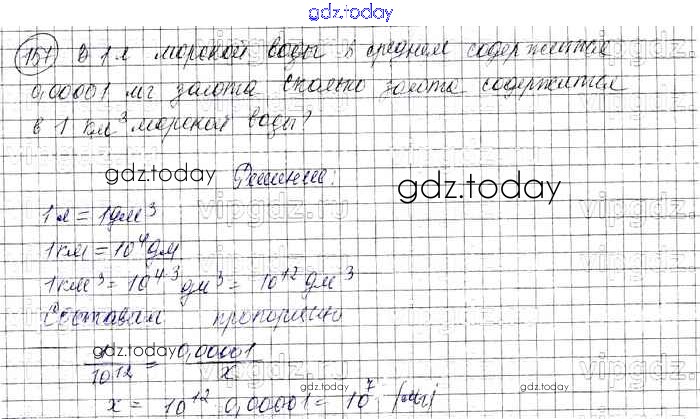 gdz.today
157 В 1 л морской воды в среднем содержится
0,00001 мг золота сколько золота содержится
в 1 км³ морской воды?
gdz.today Решение: gdz.today
vipgdz.ru
1 л = 1 дм³
1 км = 10⁴ дм
1 км³ = 10⁴·³ дм³ = 10¹² дм³
Составим пропорцию
gdz.today 0,00001
10¹² = x
gdz.today gdz.today
x = 10¹² · 0,00001 = 10⁷ (мг)